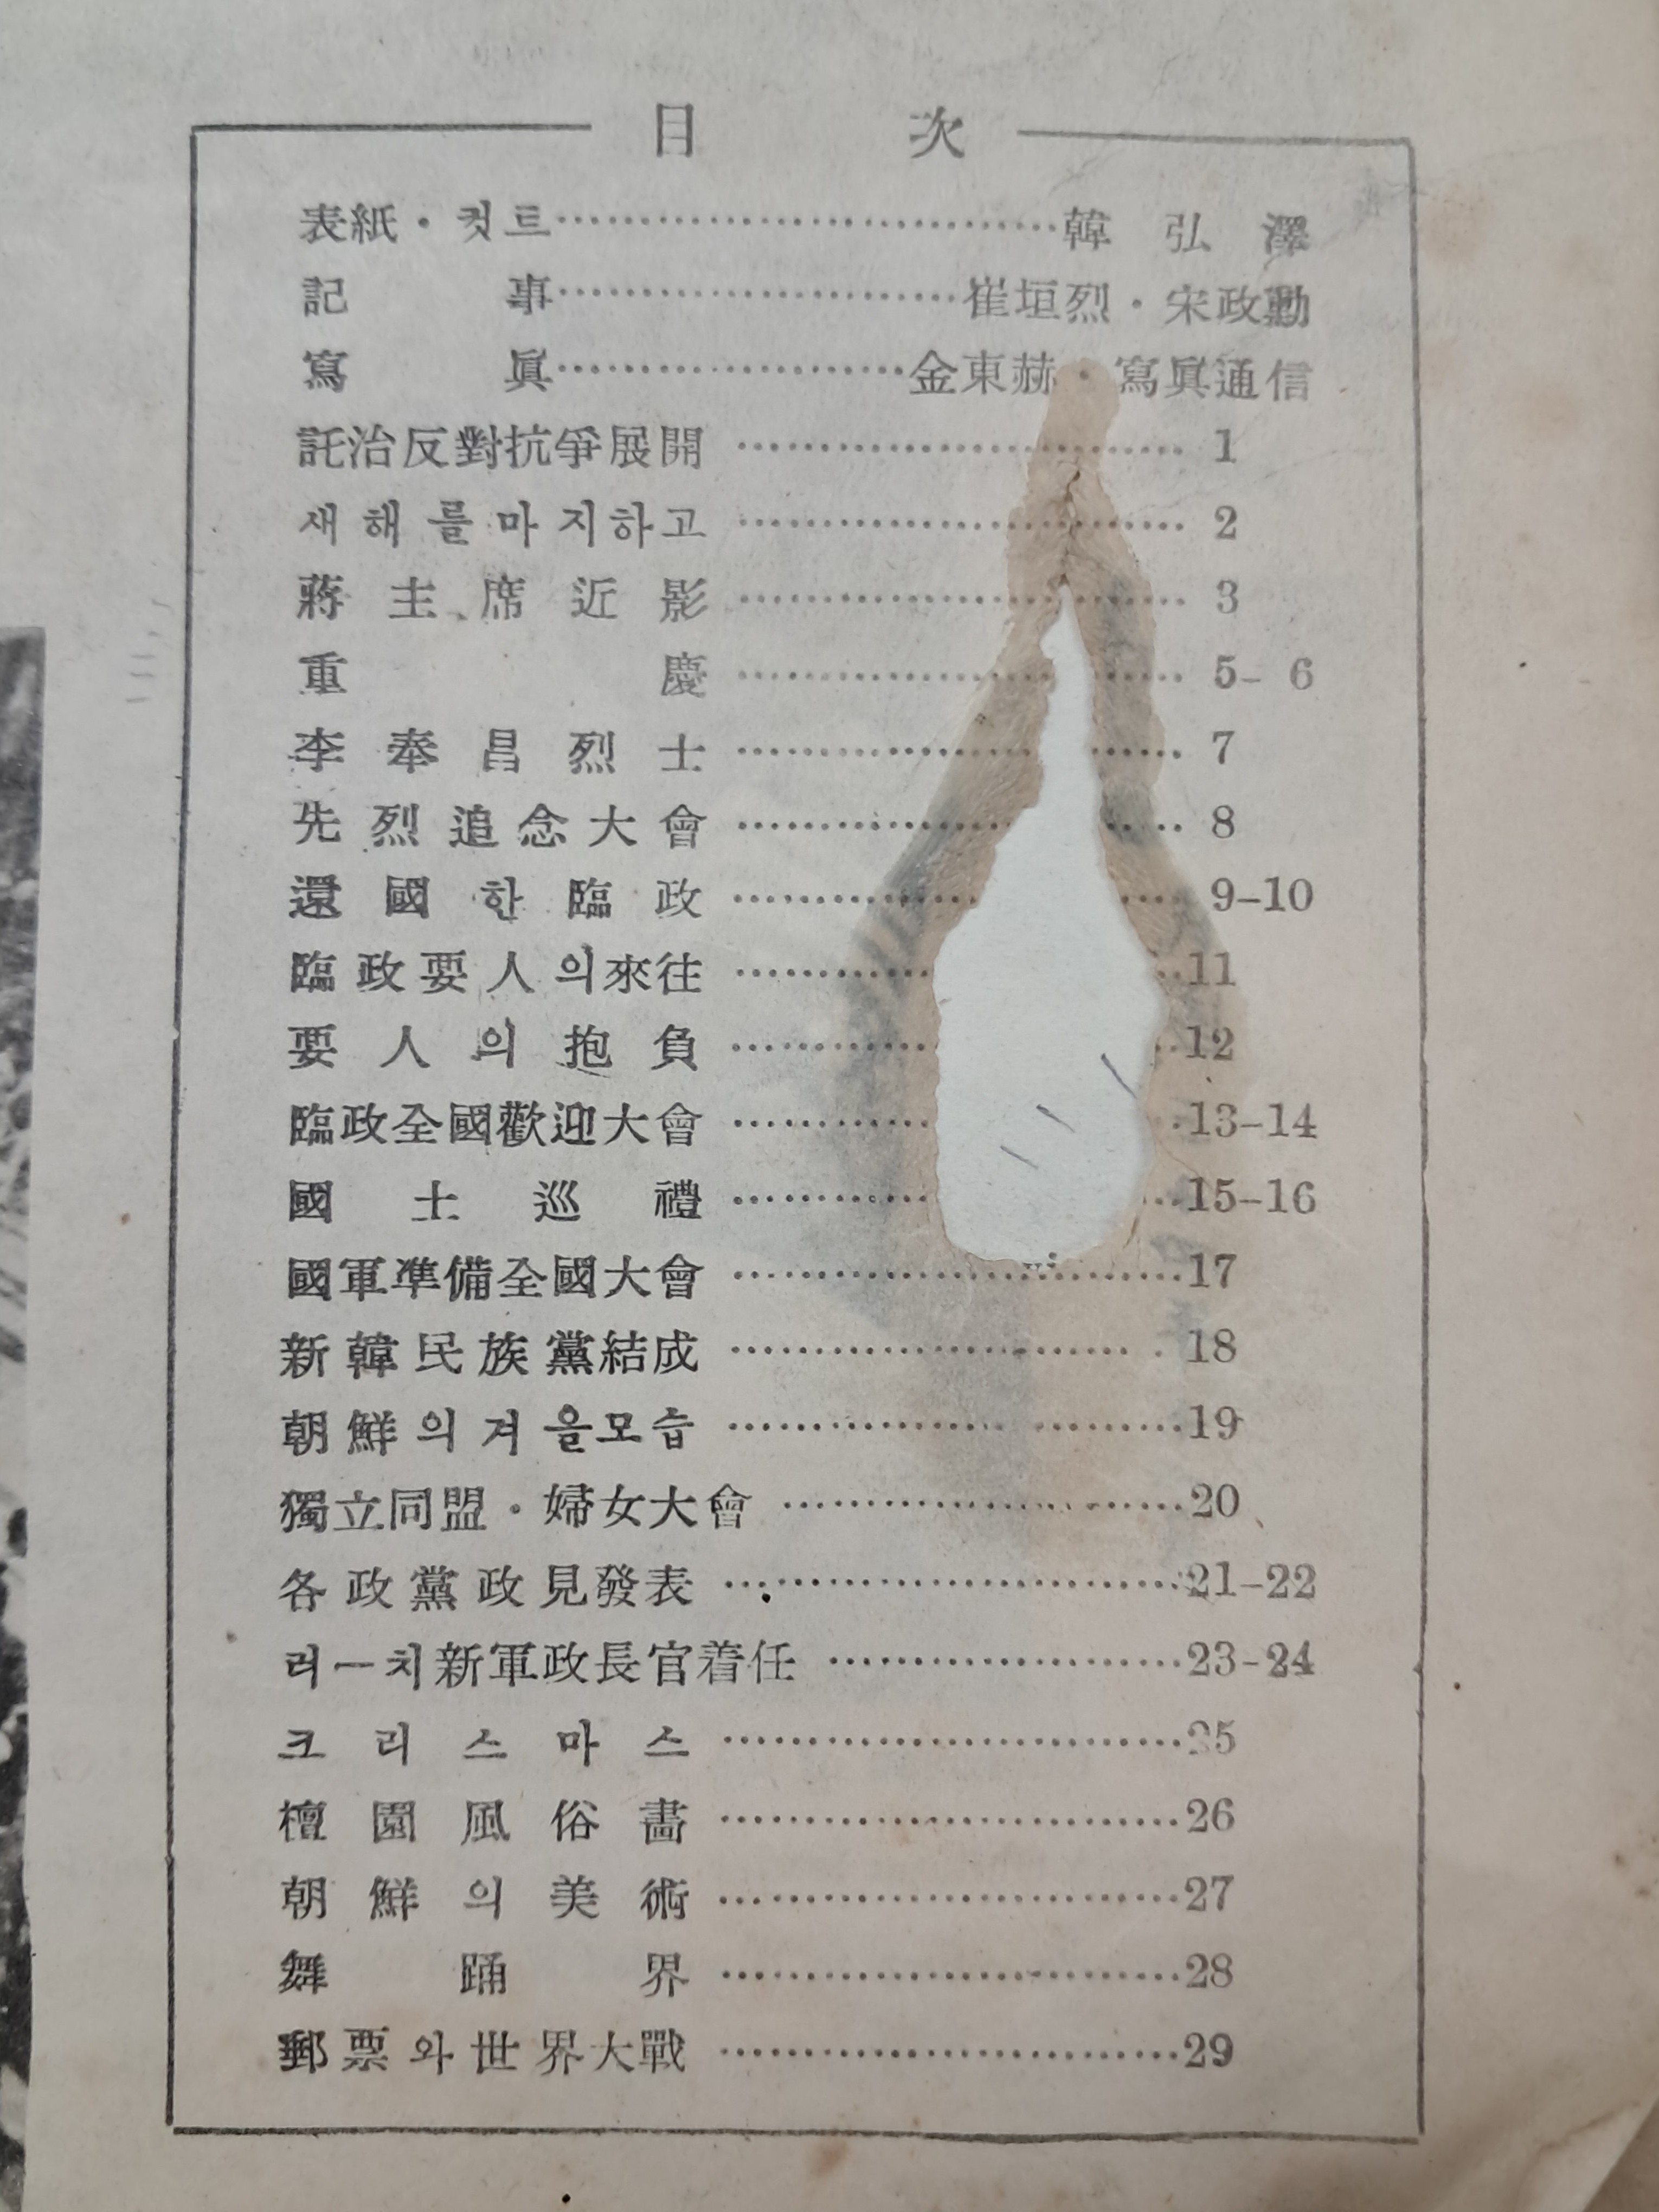 目 次
表紙・컷트……………………………韓弘澤
記事……………………崔垣烈・宋政勳
寫眞…………………金東赫・寫眞通信
託治反對抗爭展開……………………… 1
새해를마지하고……………………… 2
蔣主席近影……………………… 3
重慶……………………… 5- 6
李奉昌烈士……………………… 7
先烈追念大會……………………… 8
還國한臨政……………………… 9-10
臨政要人의來往………………………11
要人의抱負………………………12
臨政全國歡迎大會………………………13-14
國士巡禮………………………15-16
國軍準備全國大會………………………17
新韓民族黨結成………………………18
朝鮮의겨울모습………………………19
獨立同盟・婦女大會……………………20
各政黨政見發表………………………21-22
러ー치新軍政長官着任…………………23-24
크리스마스………………………25
檀園風俗畵………………………26
朝鮮의美術………………………27
舞踊界………………………28
郵票와世界大戰………………………29